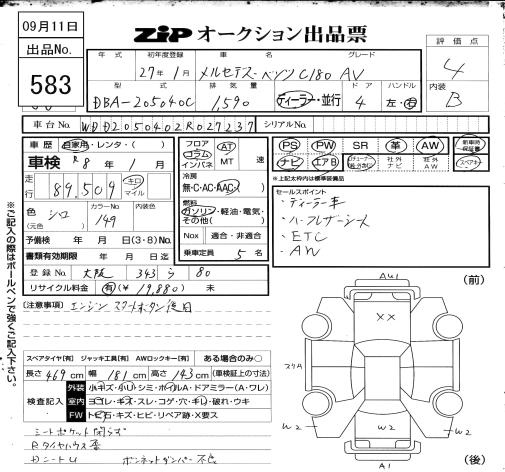 09月11日
出品No.
583
ZiP オークション出品票
評価点
4
内装
B
年式 初年度登録 車名 グレード
27年1月 メルセデス・ベンツ C180 AV
型式 排気量 ドア ハンドル
DBA-205040C 1,590 ディーラー・並行 4 左・右
車台No. WDD2050402R027237 シリアルNo.
車歴 自家用・レンタ・( )
車検 R8年1月
走行 89,509 キロ マイル
色 シロ (元色) カラーNo 149 内装色
予備検 年 月 日(3・8)No.
書類有効期限 年 月 日迄
登録No. 大阪 343 ら 80
リサイクル料金 有(¥19,880) 未
フロア コラム インパネ AT MT 速
冷房 無・C・AC・AAC
燃料 ガソリン・軽油・電気・その他( )
Nox 適合・非適合
乗車定員 5名
PS PW SR 革 AW 新車時保証書
ナビ エアB 社外ナビ 社外AW 取説
※上記太枠内は標準装備品
セールスポイント
・ディーラー車
・ハーフレザーシート
・ETC
・AW
注意事項 エンジン スタートボタン後日
スペアタイヤ[有] ジャッキ工具[有] AWロックキー[有] ある場合のみ○
長さ 469 cm 幅 181 cm 高さ 143 cm (車検証上の寸法)
検査記入
外装 小キズ・小U・シミ・ホイルA・ドアミラー(A・ワレ)
室内 ヨゴレ・キズ・スレ・コゲ・穴・キレ・破れ・ウキ
FW トビ石・キズ・ヒビ・リペア跡・X要ス
シートポケット閉らず
Rタイヤハウス歪
DシートU ボンネットダンパー不良
※ご記入の際はボールペンで強くご記入下さい。
(前)
AU1
XX
スリA
W2
W2
W2
A1
(後)